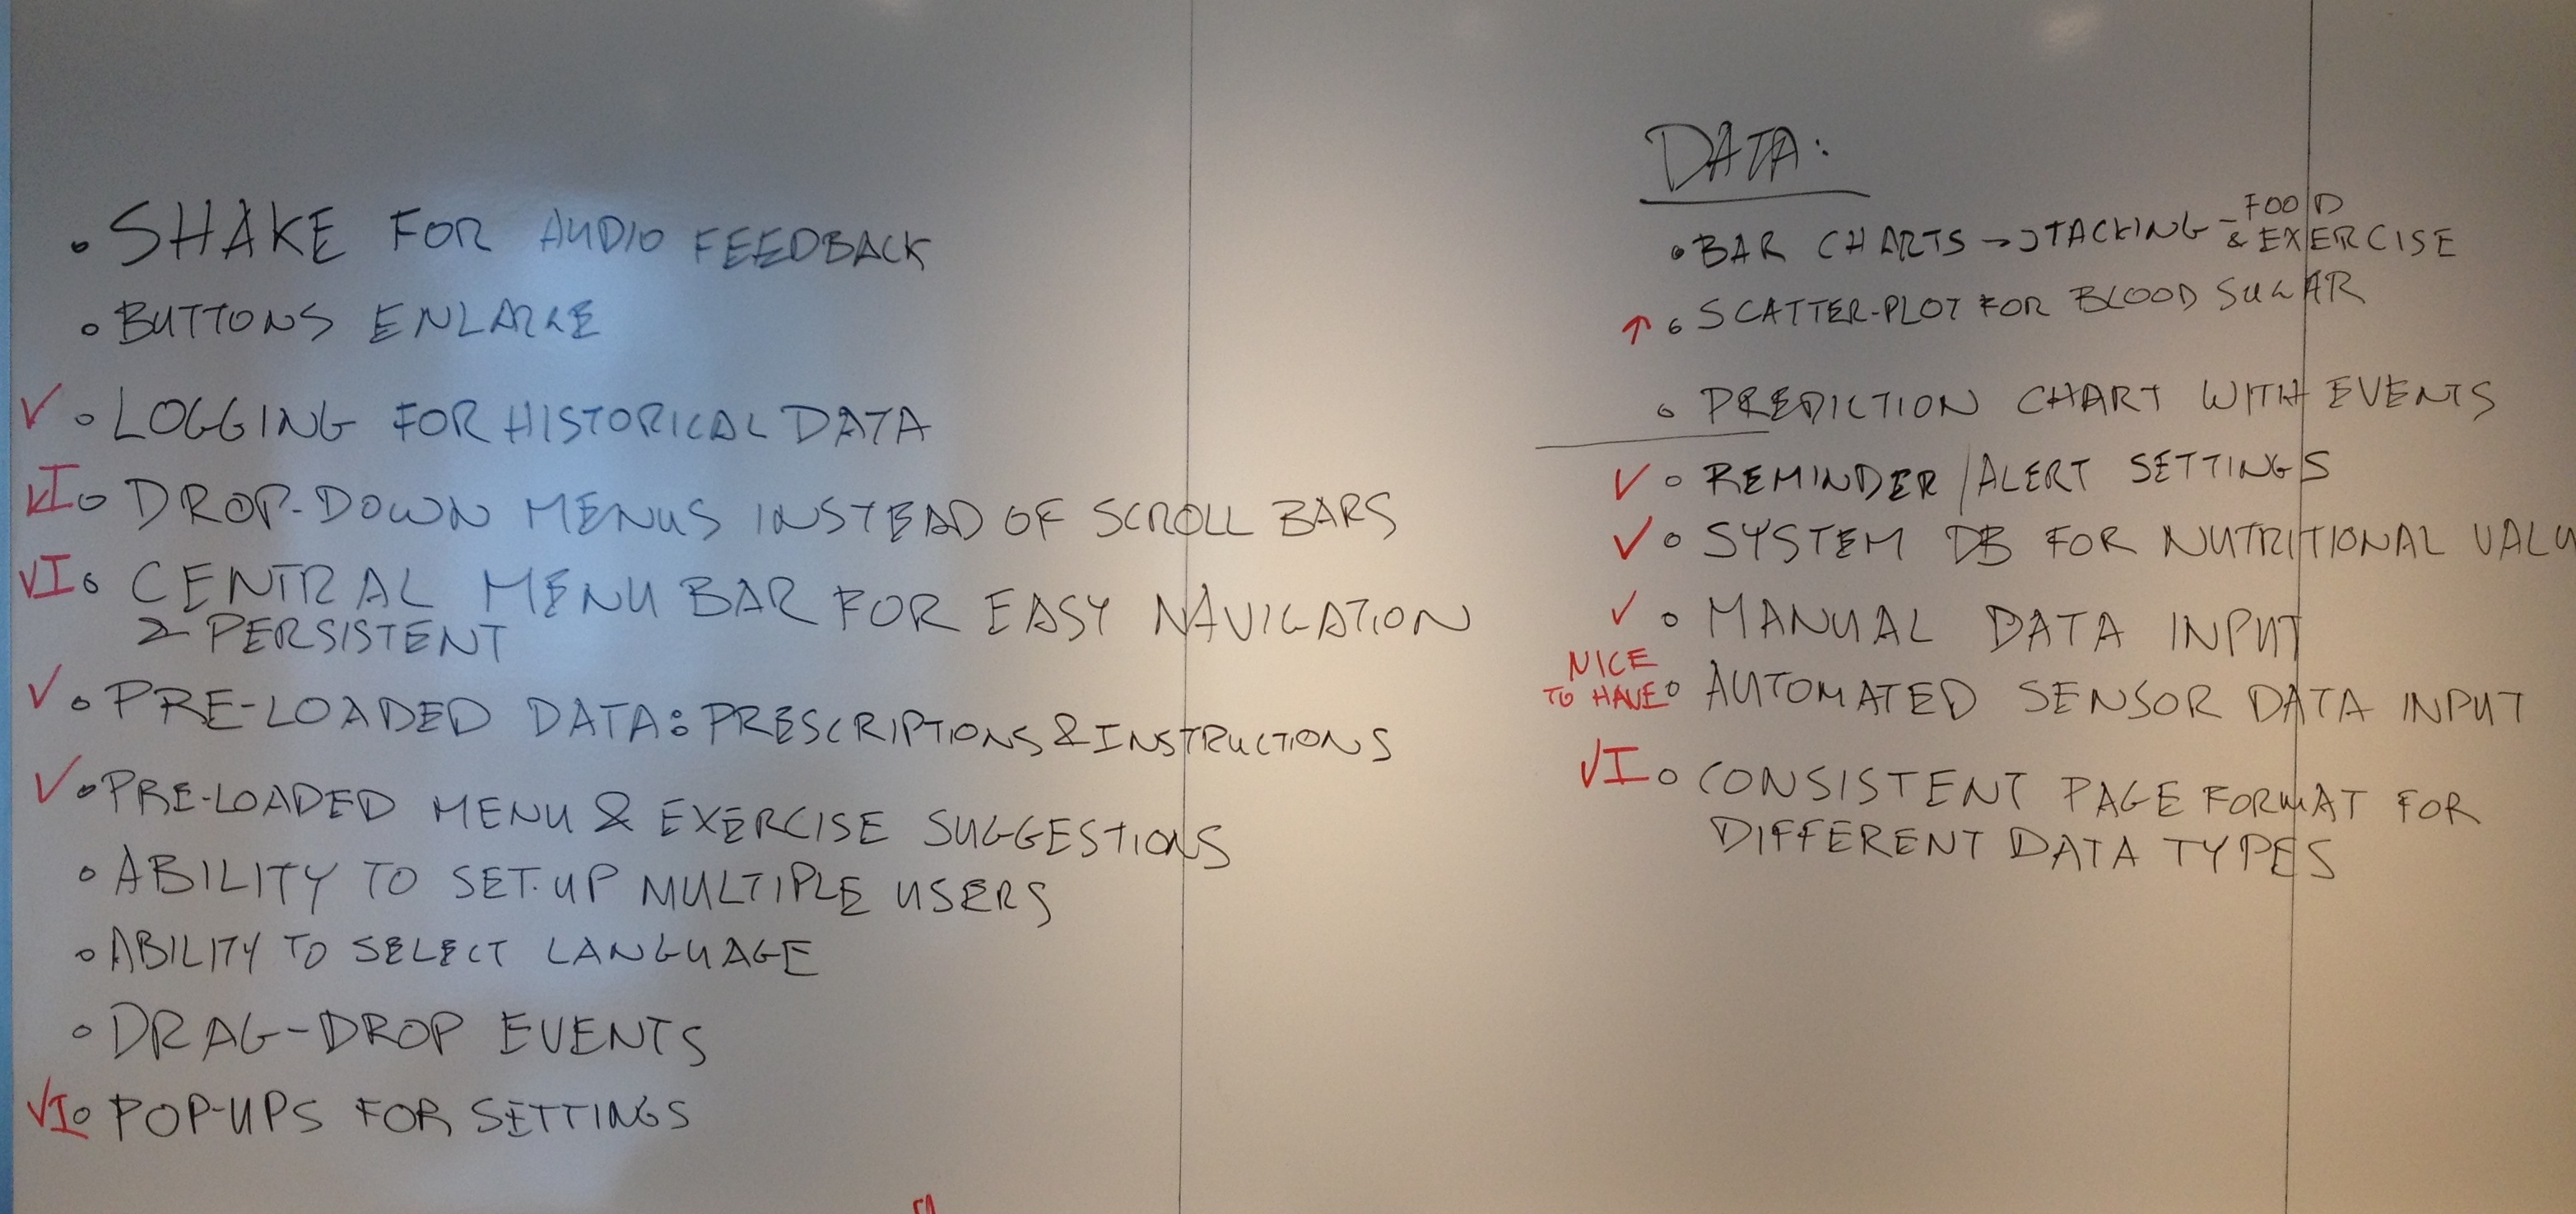 • SHAKE FOR AUDIO FEEDBACK
• BUTTONS ENLARGE
✓ • LOGGING FOR HISTORICAL DATA
✓I • DROP-DOWN MENUS INSTEAD OF SCROLL BARS
✓I • CENTRAL MENU BAR FOR EASY NAVIGATION
& PERSISTENT
✓ • PRE-LOADED DATA: PRESCRIPTIONS & INSTRUCTIONS
✓ • PRE-LOADED MENU & EXERCISE SUGGESTIONS
• ABILITY TO SET-UP MULTIPLE USERS
• ABILITY TO SELECT LANGUAGE
• DRAG-DROP EVENTS
✓I • POP-UPS FOR SETTINGS
DATA:
• BAR CHARTS → STACKING - FOOD
& EXERCISE
↑ • SCATTER-PLOT FOR BLOOD SUGAR
• PREDICTION CHART WITH EVENTS
✓ • REMINDER / ALERT SETTINGS
✓ • SYSTEM DB FOR NUTRITIONAL VALU
✓ • MANUAL DATA INPUT
NICE
TO HAVE • AUTOMATED SENSOR DATA INPUT
✓I • CONSISTENT PAGE FORMAT FOR
DIFFERENT DATA TYPES